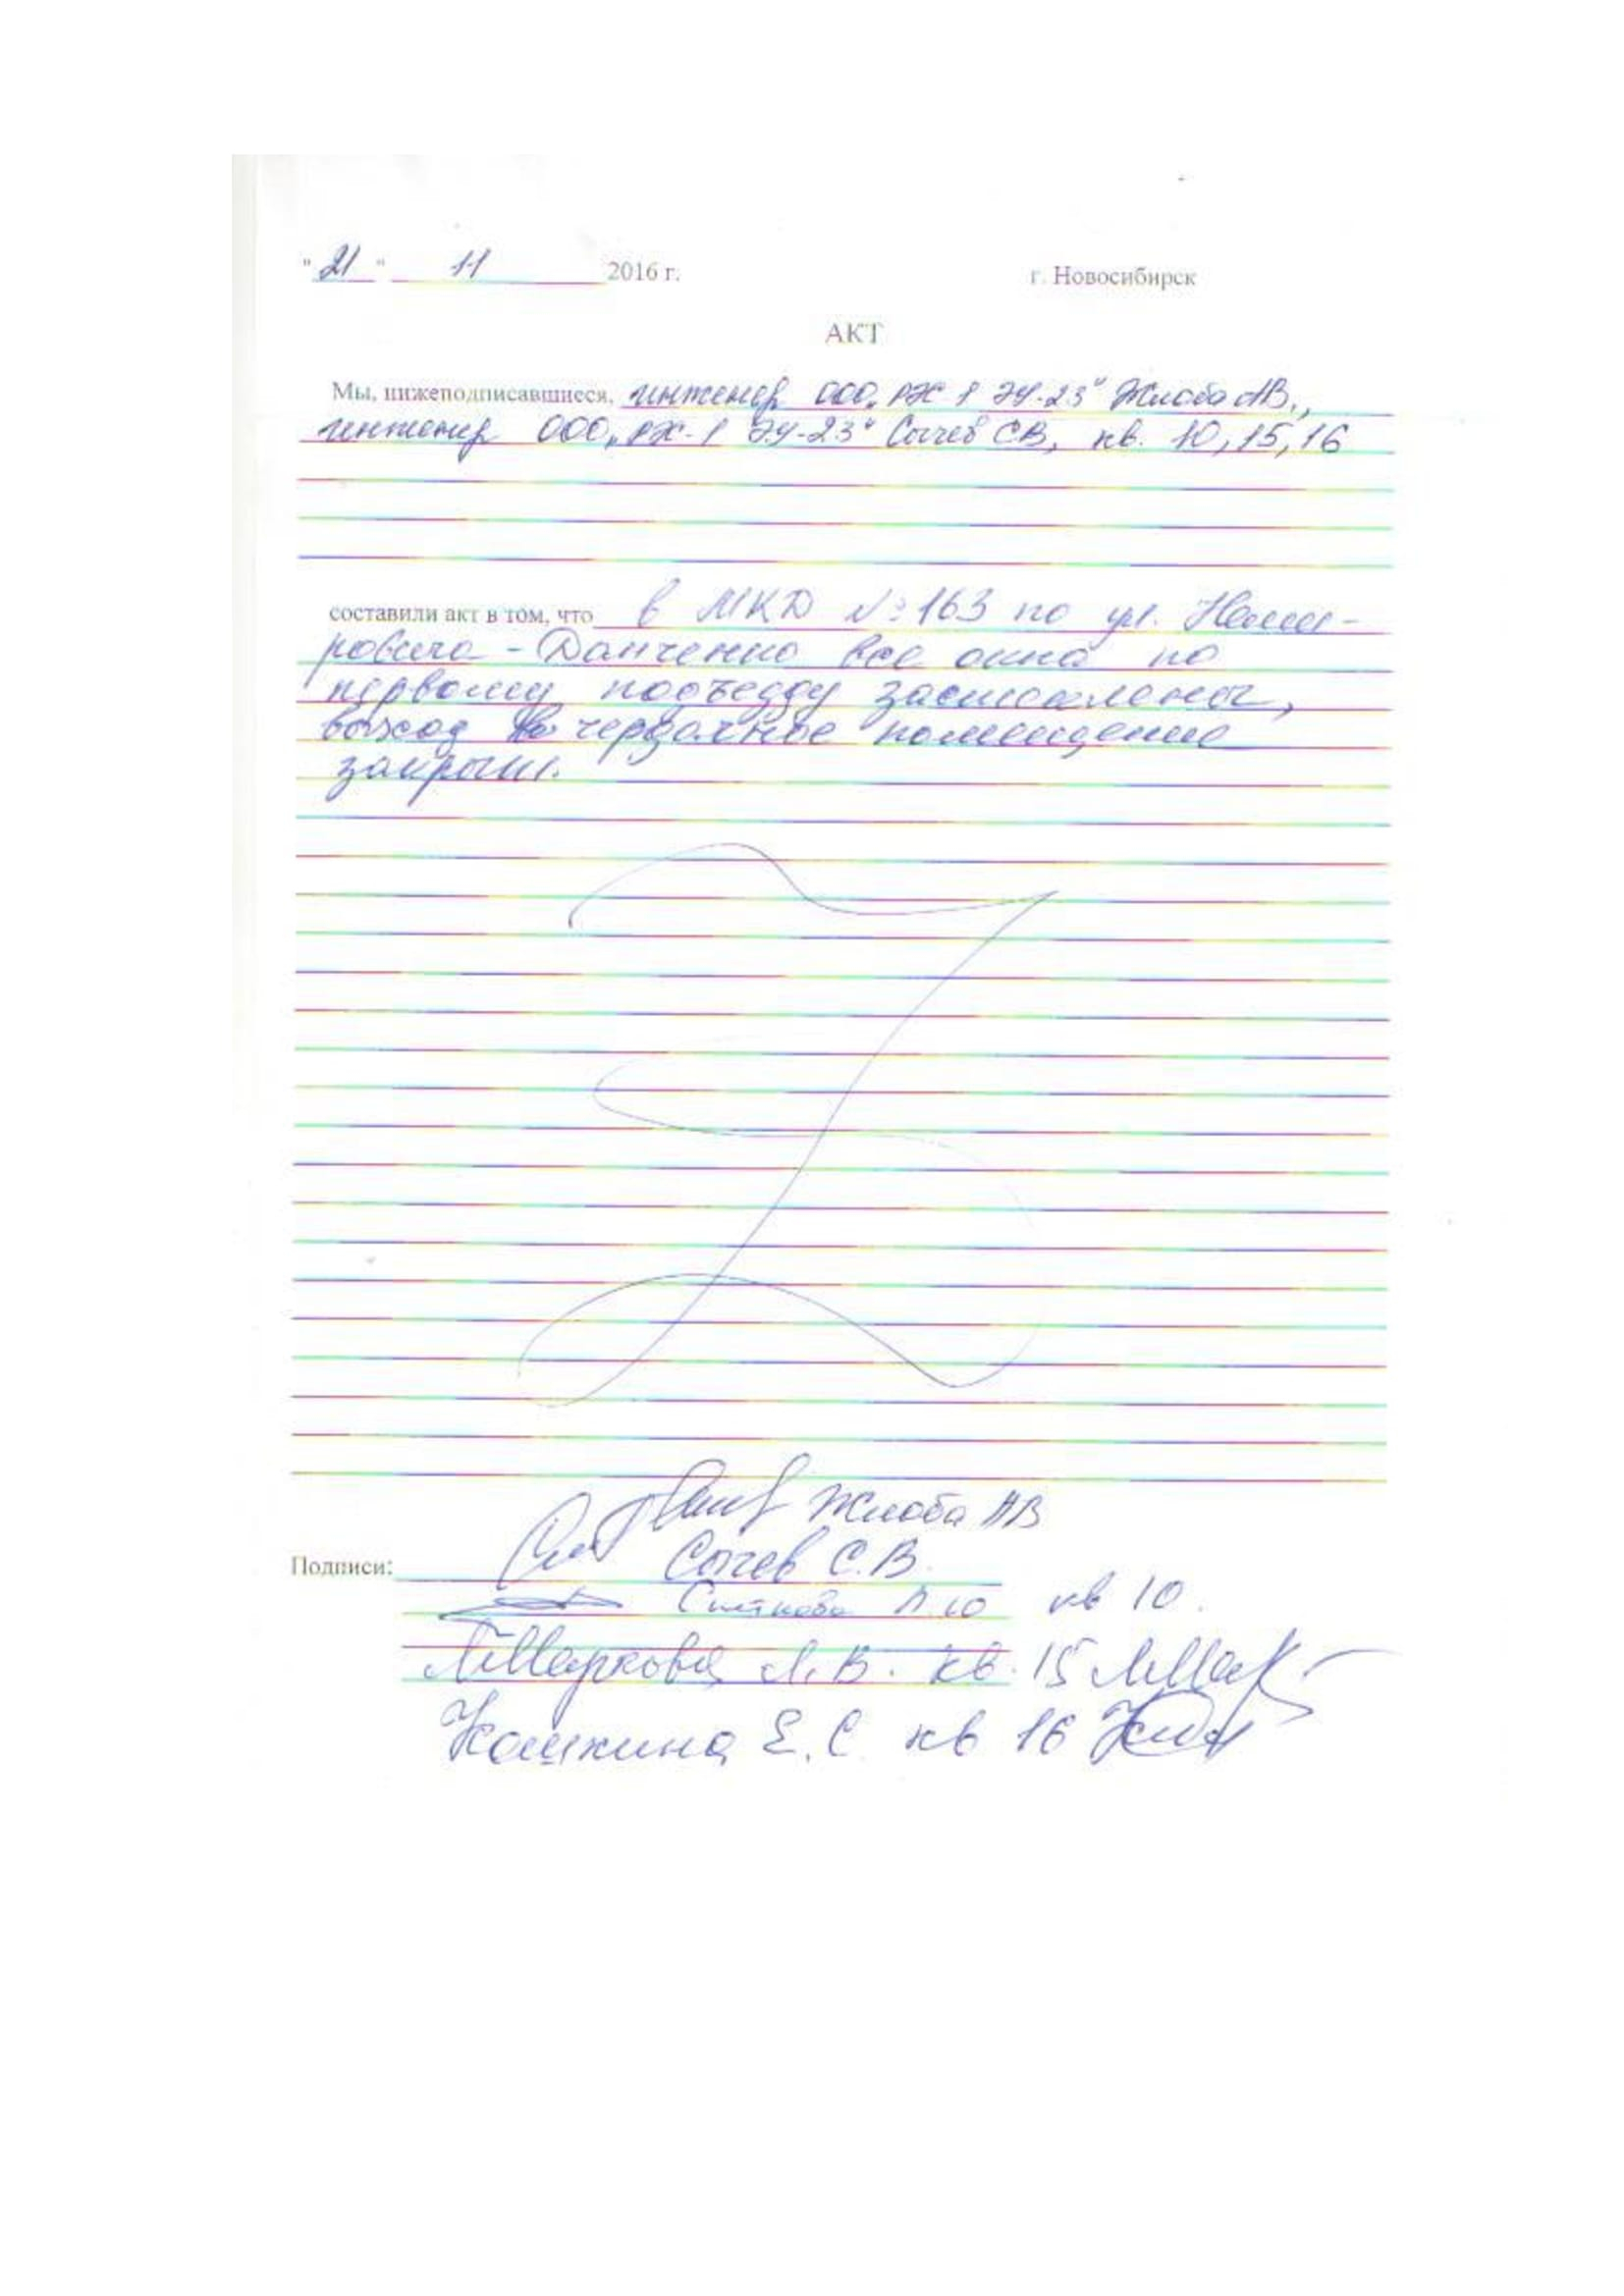 "21" 11 2016 г. г. Новосибирск
АКТ
Мы, нижеподписавшиеся, инженер ООО „РЖ-1 ЭУ-23" Жлоба АВ.,
инженер ООО „РЖ-1 ЭУ-23" Сычев СВ, кв. 10, 15, 16
составили акт в том, что в МКД № 163 по ул. Неми-
ровича - Данченко все окна по
первому подъезду застеклены,
выход в чердачное помещение
закрыт.
Жлоба АВ
Подписи: Сычев С.В.
Л.Ю кв 10.
Маркова Л.В. кв. 15
Кашкина Е.С. кв 16